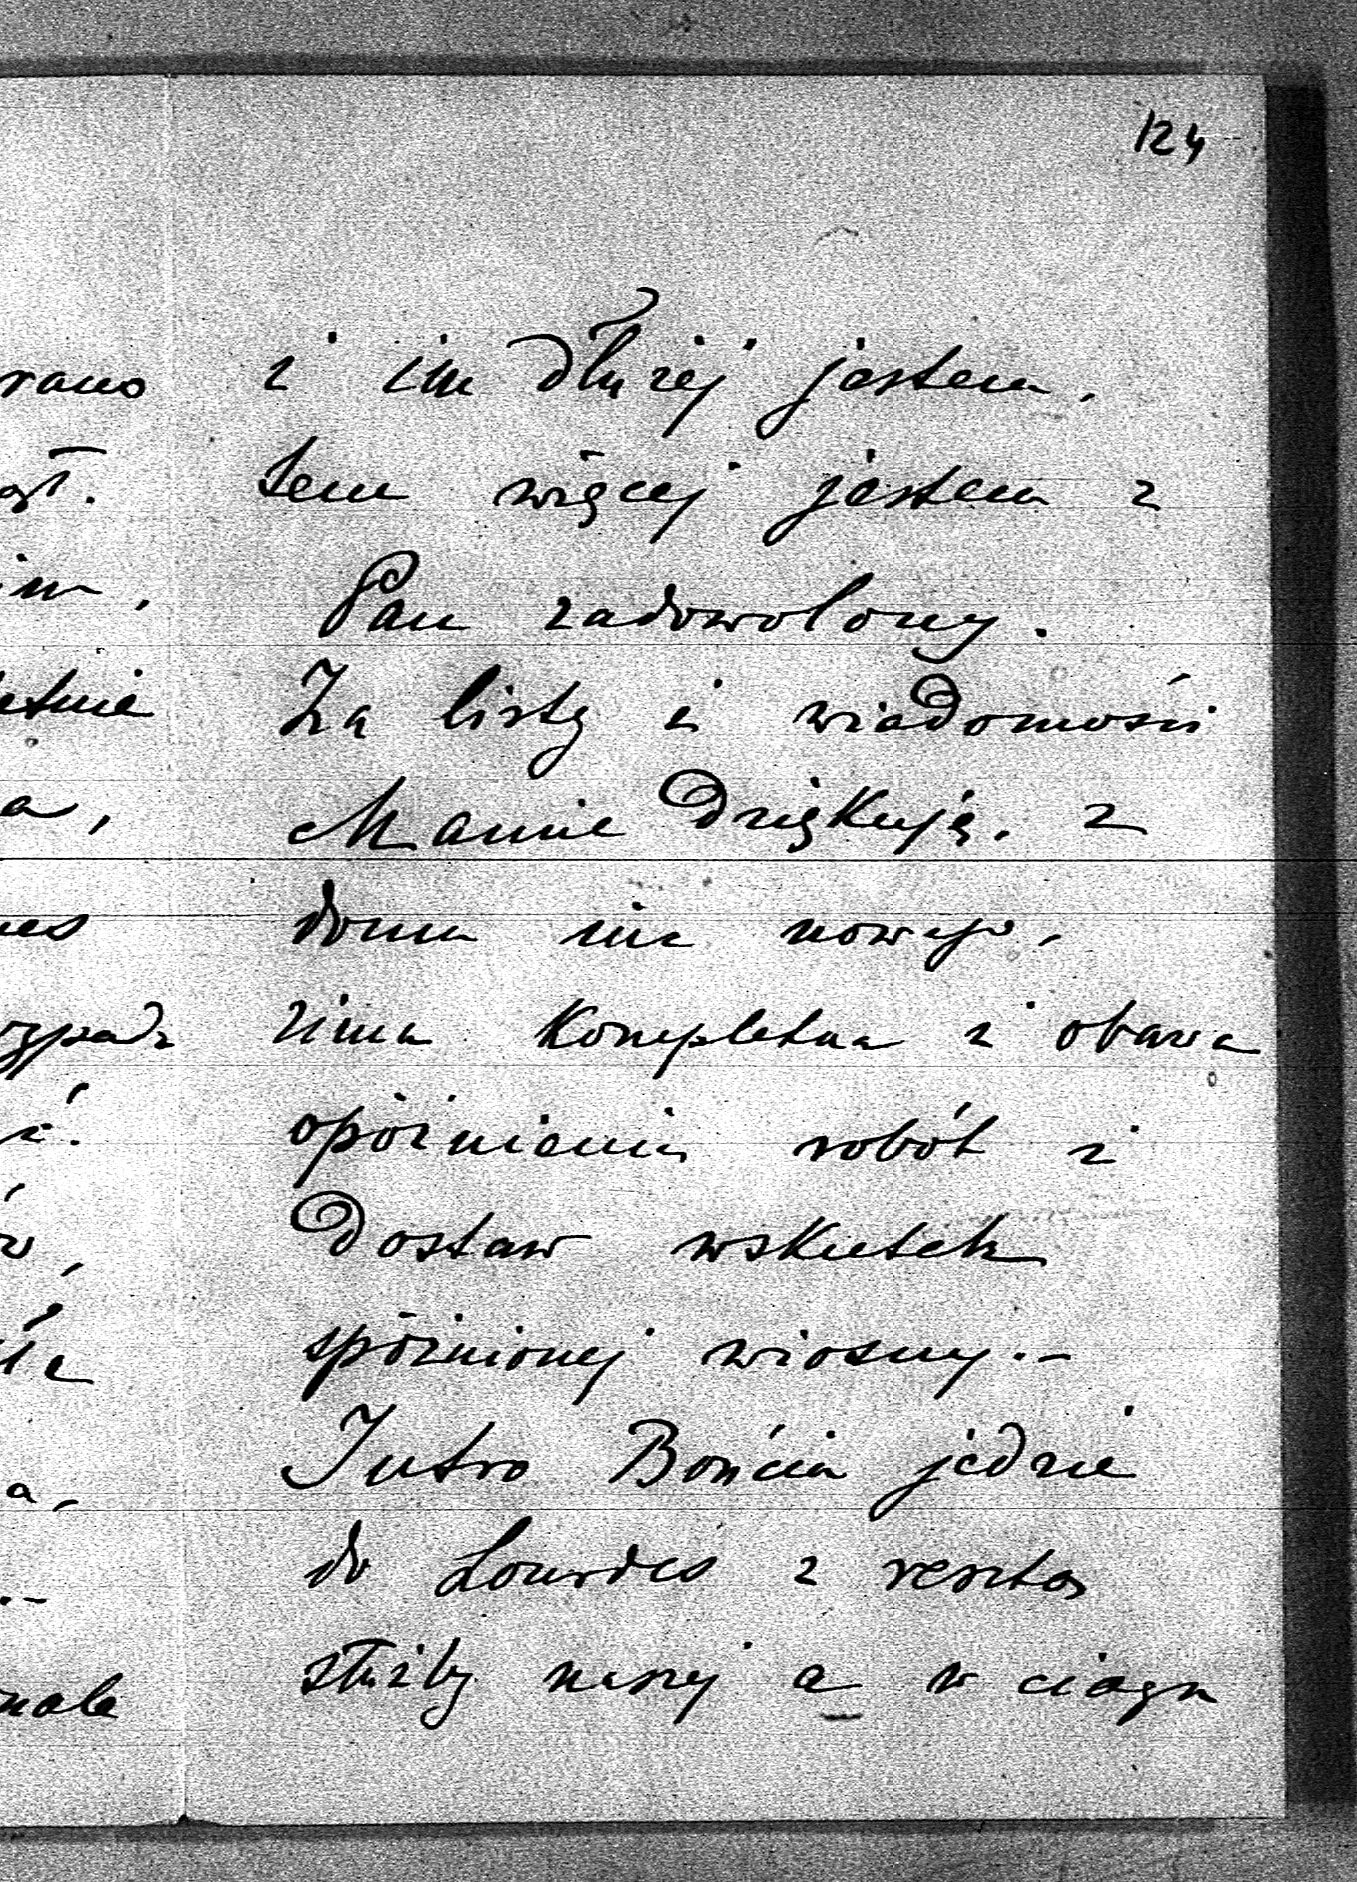 124
i im dłużej jestem,
tem więcej jestem z
Pau zadowolony.
Za listy i wiadomości
Mamie dziękuję. Z
domu nic nowego,
zima kompletna i obawa
opóźnienia robót i
dostaw wskutek
spóźnionej wiosny.-
Jutro Bońcia jedzie
do Lourdes z resztą
służby naszej a w ciągu
rano
im,
etnie
a,
nes
zypadz
 małe